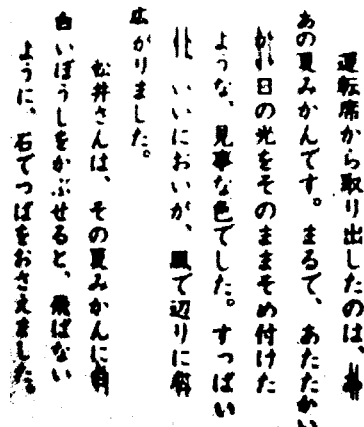 運転席から取り出したのは、
あの夏みかんです。まるで、あたたかい
日の光をそのままそめ付けた
ような、見事な色でした。すっぱい
いいにおいが、風で辺りに
広がりました。
松井さんは、その夏みかんに
白いぼうしをかぶせると、飛ばない
ように、石でつばをおさえました。